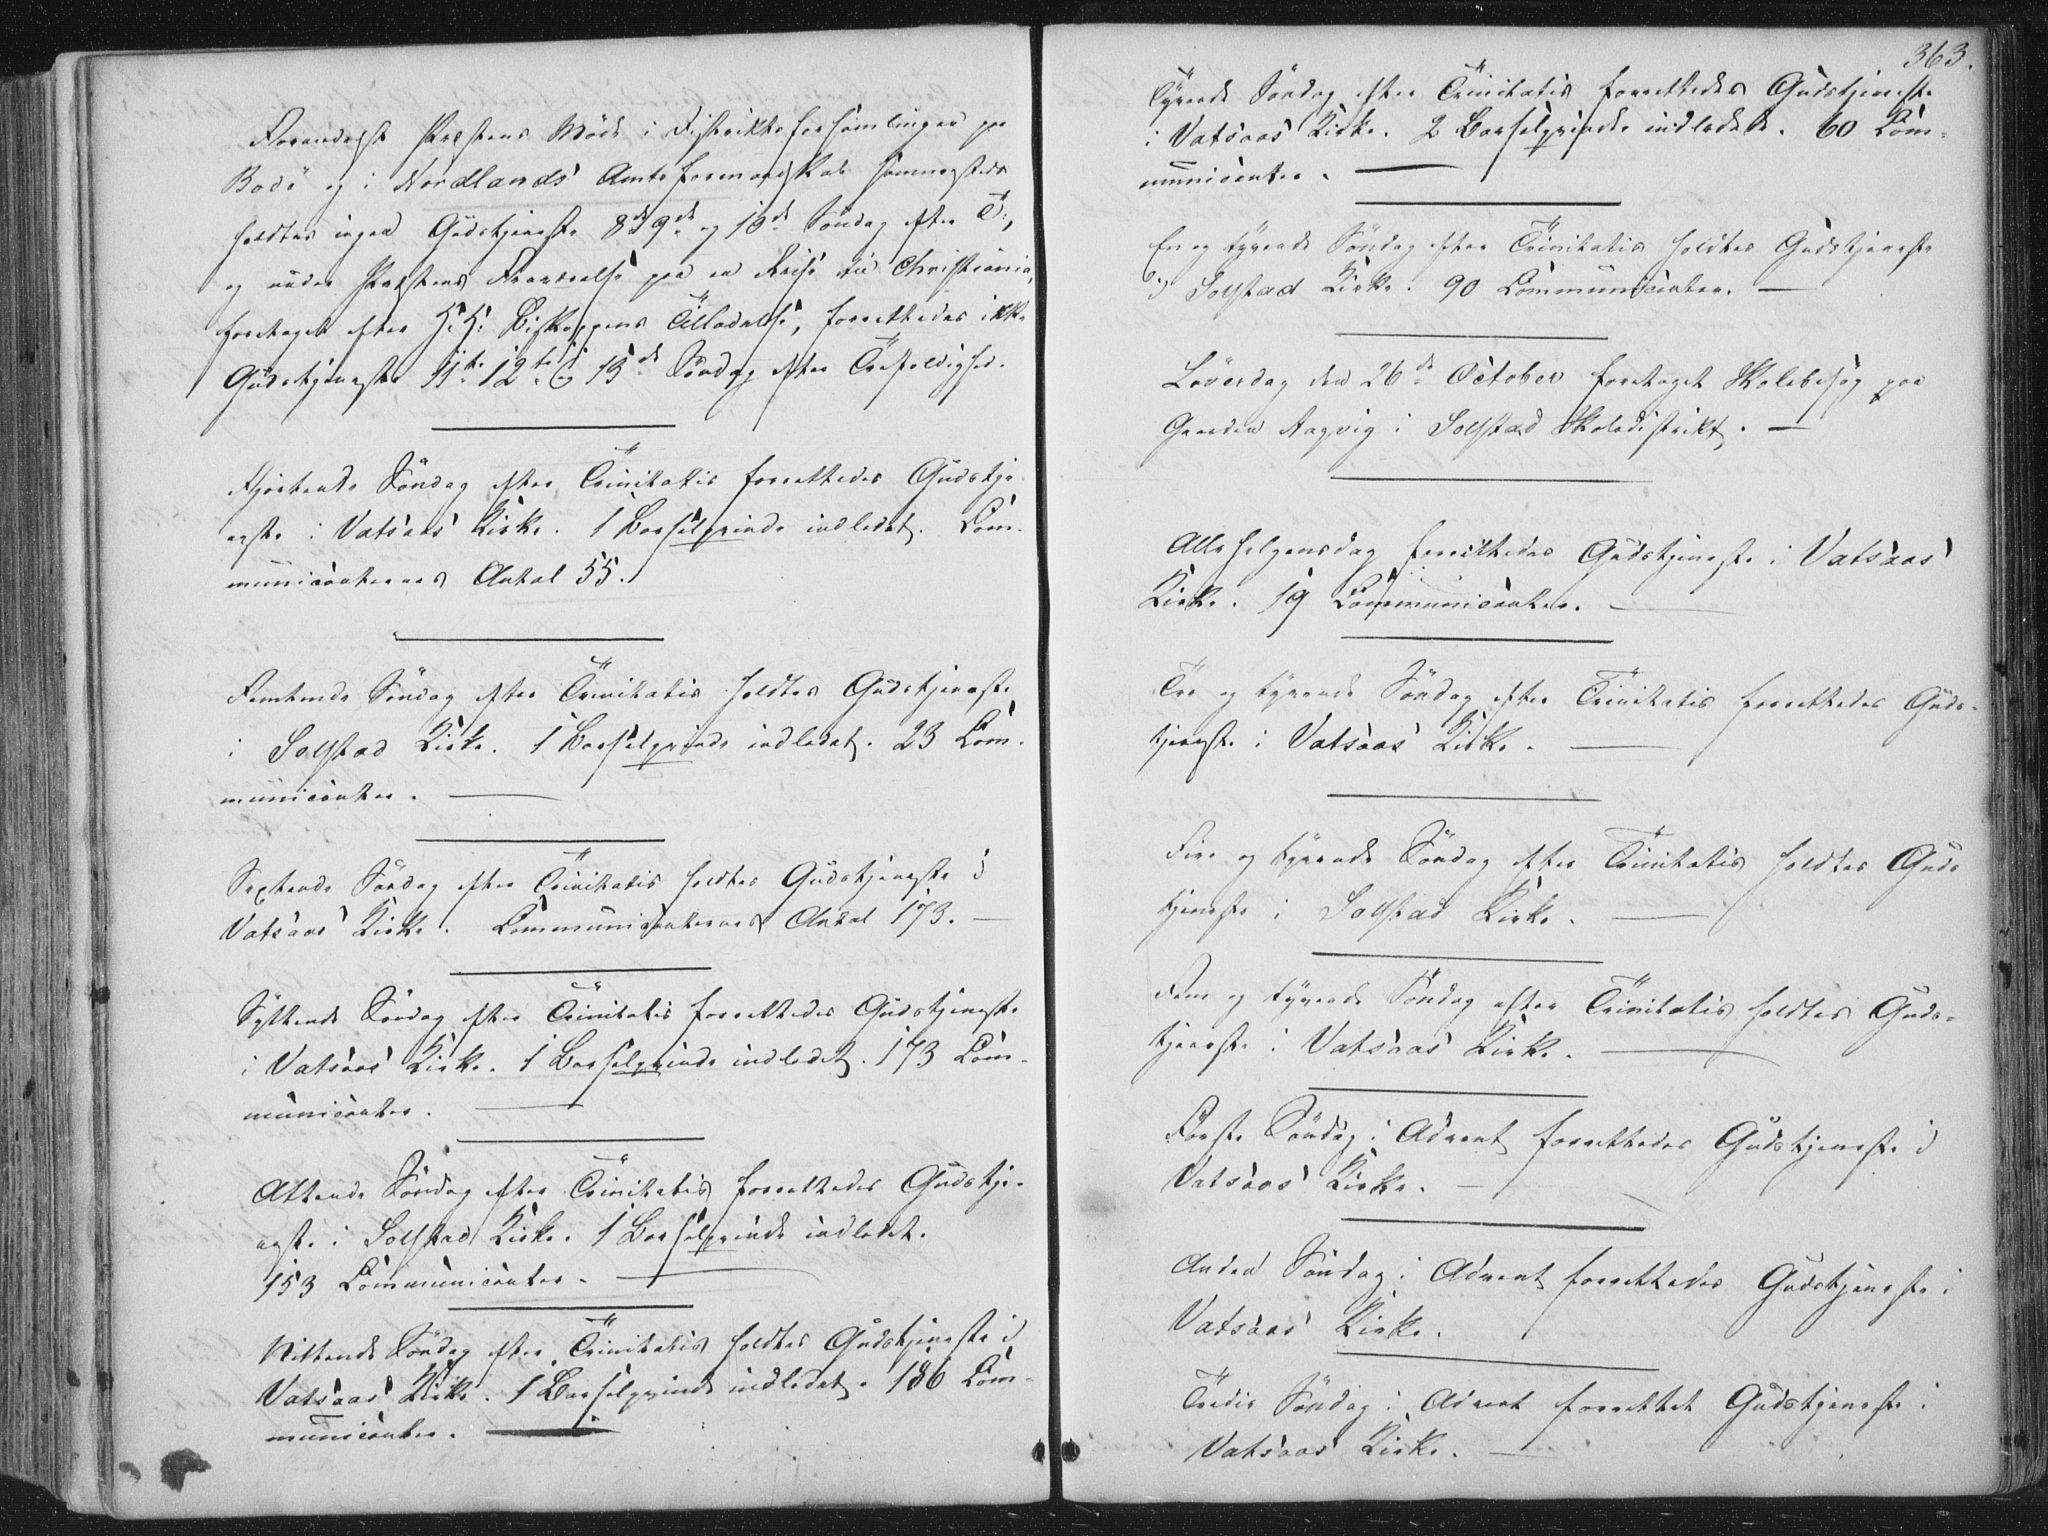 Foranledst Præstens Møde i Distriktsforsamlingen paa
Bodø og i Nordlands Amtsformandskab sammesteds
holdtes ingen Gudstjeneste 8de 9de og 10de Søndag efter T:,
og under Præstens Fraværelse paa en Reise til Christiania,
foretaget efter H: H: Biskoppens Tilladelse, forrettedes ikke
Gudstjeneste 11te 12te & 13de Søndag efter Trefoldighed.
Fjortende Søndag efter Trinitatis forrettedes Gudstje-
neste i Vatsaas Kirke. 1 Barselqvinde indledet. Com-
municanternes Antal 55.
Femtende Søndag efter Trinitatis holdtes Gudstjeneste
i Solstad Kirke. 1 Barselqvinde indledet. 23 Com-
municanter.
Sextende Søndag efter Trinitatis holdtes Gudstjeneste i
Vatsaas Kirke. Communicanternes Antal 173.
Syttende Søndag efter Trinitatis forrettedes Gudstjeneste
i Vatsaas Kirke. 1 Barselqvinde indledet. 173 Com-
municanter.
Attende Søndag efter Trinitatis forrettedes Gudstje-
neste i Solstad Kirke. 1 Barselqvinde indledet.
153 Communicanter.
Nittende Søndag efter Trinitatis holdtes Gudstjeneste i
Vatsaas Kirke. 1 Barselqvinde indledet. 136 Com-
municanter.
363.
Tyvende Søndag efter Trinitatis forrettedes Gudstjeneste
i Vatsaas Kirke. 2 Barselqvinder indledede. 60 Com-
municanter.
En og tyvende Søndag efter Trinitatis holdtes Gudstjeneste
i Solstad Kirke. 90 Communicanter.
Løverdag den 26de October foretaget Skolebesøg paa
Gaarden Aagvig i Solstad Skoledistrikt.
Alle Helgensdag forrettedes Gudstjeneste i Vatsaas
Kirke. 19 Communicanter.
Tre og tyvende Søndag efter Trinitatis forrettedes Guds-
tjeneste i Vatsaas Kirke.
Fire og tyvende Søndag efter Trinitatis holdtes Guds
tjeneste i Solstad Kirke.
Fem og tyvende Søndag efter Trinitatis holdtes Guds-
tjeneste i Vatsaas Kirke.
Første Søndag i Advent forrettedes Gudstjeneste i
Vatsaas Kirke.
Anden Søndag i Advent forrettedes Gudstjeneste i
Vatsaas Kirke.
Tredie Søndag i Advent forrettet Gudstjeneste i
Vatsaas Kirke.